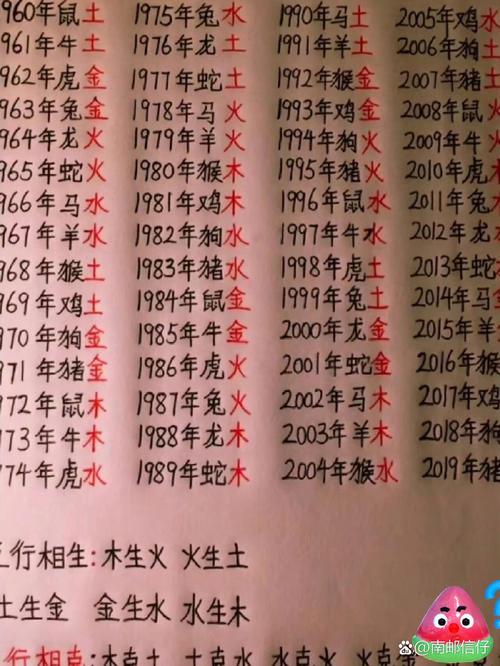 960年鼠土 1975年兔水 1990年马土 2005年鸡水
961年牛土 1976年龙土 1991年羊土 2006年狗土
962年虎金 1977年蛇土 1992年猴金 2007年猪土
963年兔金 1978年马火 1993年鸡金 2008年鼠火
964年龙火 1979年羊火 1994年狗火 2009年牛火
965年蛇火 1980年猴木 1995年猪火 2010年虎木
966年马水 1981年鸡木 1996年鼠水 2011年兔
967年羊水 1982年狗水 1997年牛水 2012年龙
968年猴土 1983年猪水 1998年虎土 2013年蛇
969年鸡土 1984年鼠金 1999年兔土 2014年马
970年狗金 1985年牛金 2000年龙金 2015年羊
971年猪金 1986年虎火 2001年蛇金 2016年猴
972年鼠木 1987年兔火 2002年马木 2017年鸡
973年牛木 1988年龙木 2003年羊木 2018年狗
74年虎水 1989年蛇木 2004年猴水 2019年猪
五行相生:木生火 火生土
土生金 金生水 水生木
行相克:木克土 土克水 水克火 火克
?
@南邮信仔